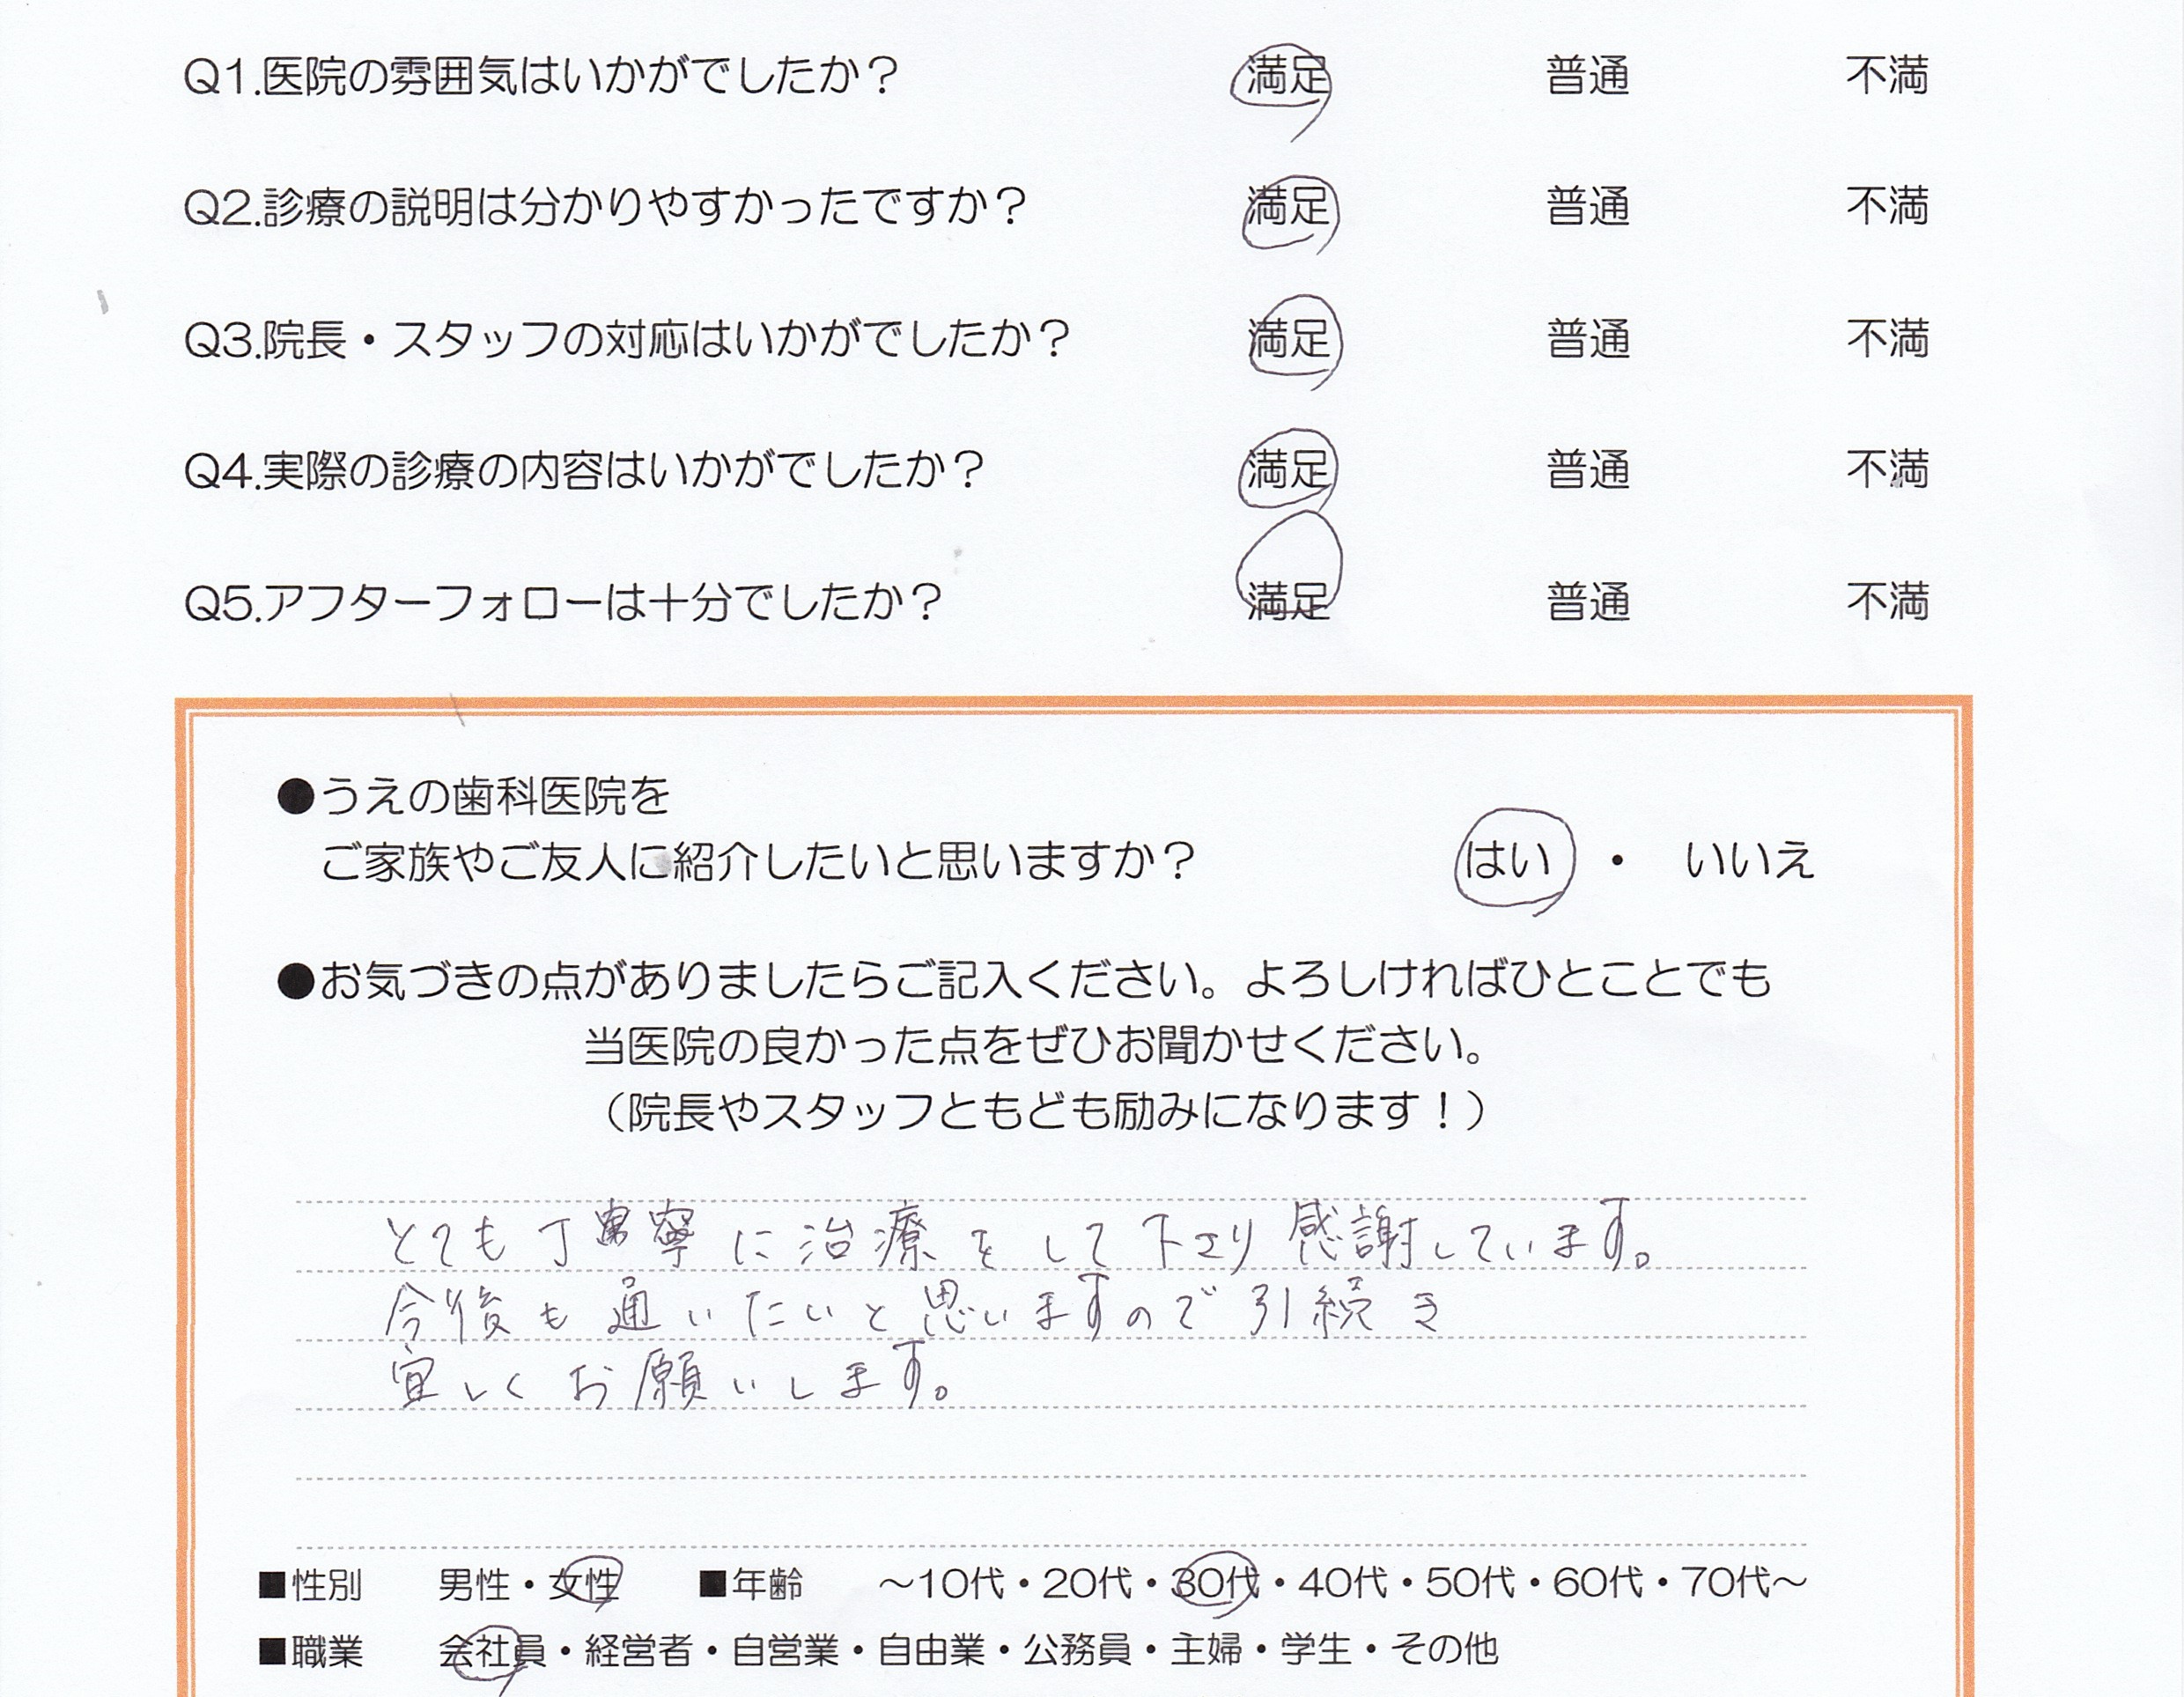 Q1.医院の雰囲気はいかがでしたか？ 満足 普通 不満
Q2.診療の説明は分かりやすかったですか？ 満足 普通 不満
Q3.院長・スタッフの対応はいかがでしたか？ 満足 普通 不満
Q4.実際の診療の内容はいかがでしたか？ 満足 普通 不満
Q5.アフターフォローは十分でしたか？ 満足 普通 不満
●うえの歯科医院を
ご家族やご友人に紹介したいと思いますか？ はい ・ いいえ
●お気づきの点がありましたらご記入ください。よろしければひとことでも
当医院の良かった点をぜひお聞かせください。
（院長やスタッフともども励みになります！）
とても丁寧に治療をして下さり感謝しています。
今後も通いたいと思いますので引続き
宜しくお願いします。
■性別 男性・女性 ■年齢 〜10代・20代・30代・40代・50代・60代・70代〜
■職業 会社員・経営者・自営業・自由業・公務員・主婦・学生・その他